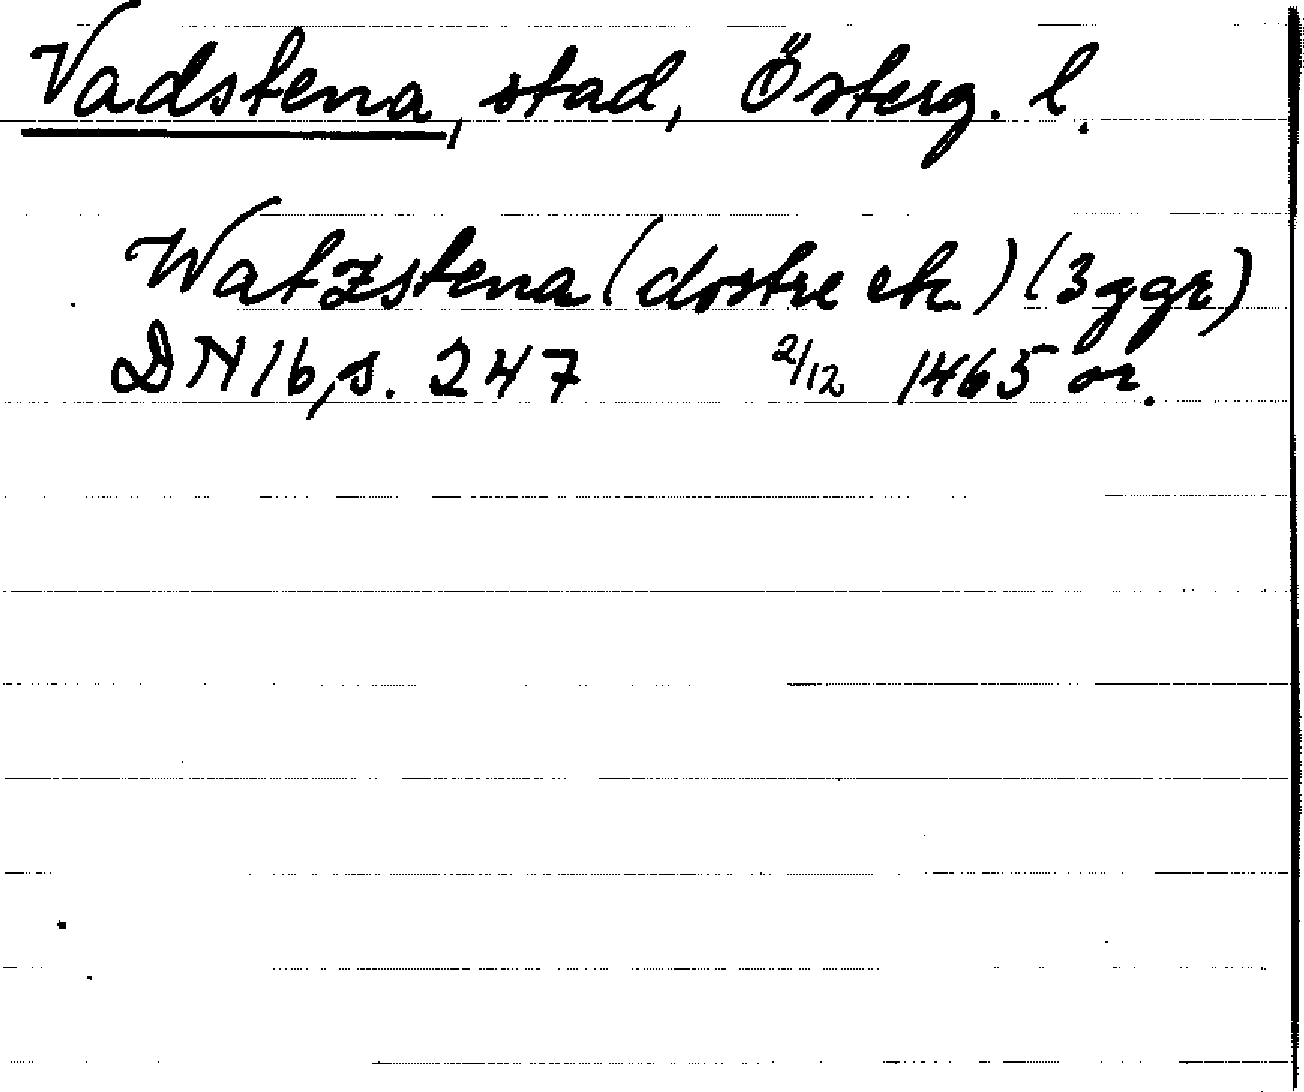 Vadstena, stad, Österg. l.
Watzstena (clostre etc.) (3 ggr)
DN 16, s. 247 2/12 1465 or.